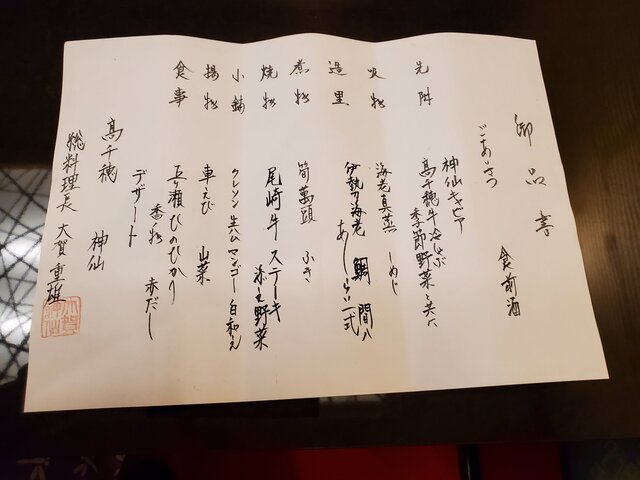 御品書
食前酒
ごあいさつ
先附
神仙キャビア
高千穂牛冷しゃぶ
季節野菜と共に
吸物
海老真蒸 しめじ
造里
伊勢海老 鯛 間八
あしらい一式
煮物
筍萬頭 ふき
焼物
尾崎牛ステーキ
添え野菜
小鉢
クレソン 生ハム マンゴー 白和え
揚物
車えび 山菜
食事
五ヶ瀬ひのひかり
香物 赤だし
デザート
高千穂 神仙
総料理長 大賀重雄